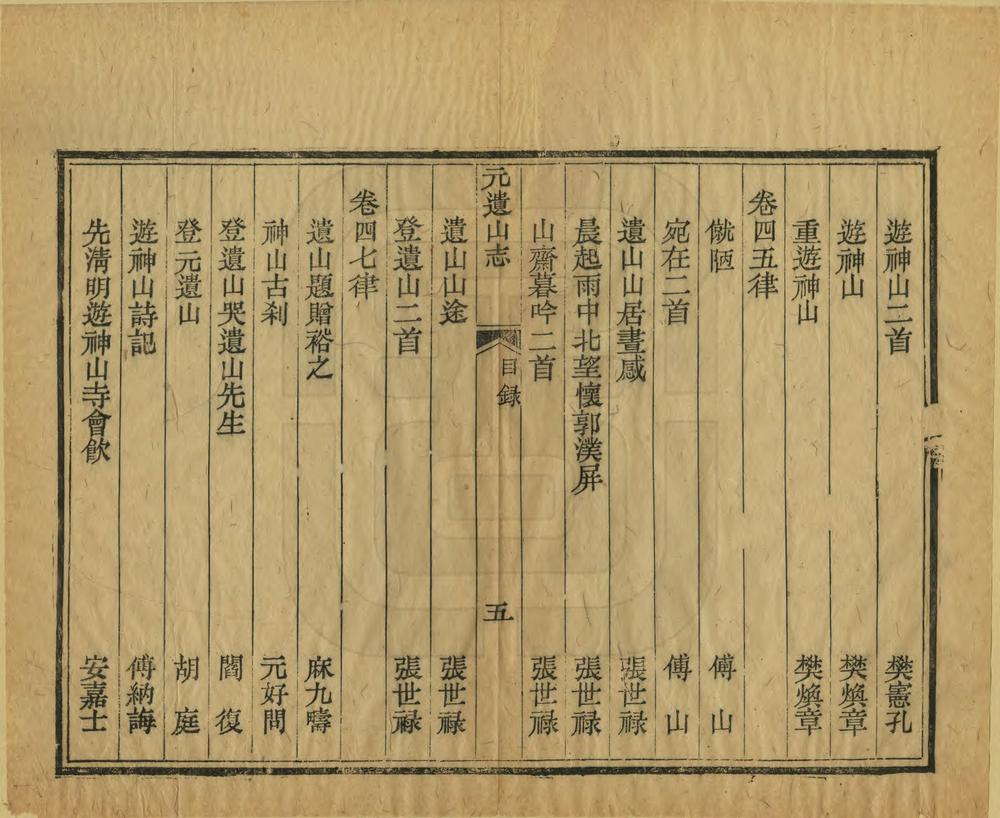 遊神山二首 樊憲孔
遊神山 樊煥章
重遊神山 樊煥章
卷四五律
僦陋 傅山
宛在二首 傅山
遺山山居晝感 張世禄
晨起雨中北望懷郭漢屏 張世禄
山齋暮吟二首 張世禄
元遺山志 目録 五
遺山山途 張世禄
登遺山二首 張世禄
卷四七律
遺山題贈裕之 麻九疇
神山古刹 元好問
登遺山哭遺山先生 閻復
登元遺山 胡庭
遊神山詩記 傅納誨
先清明遊神山寺會飲 安嘉士